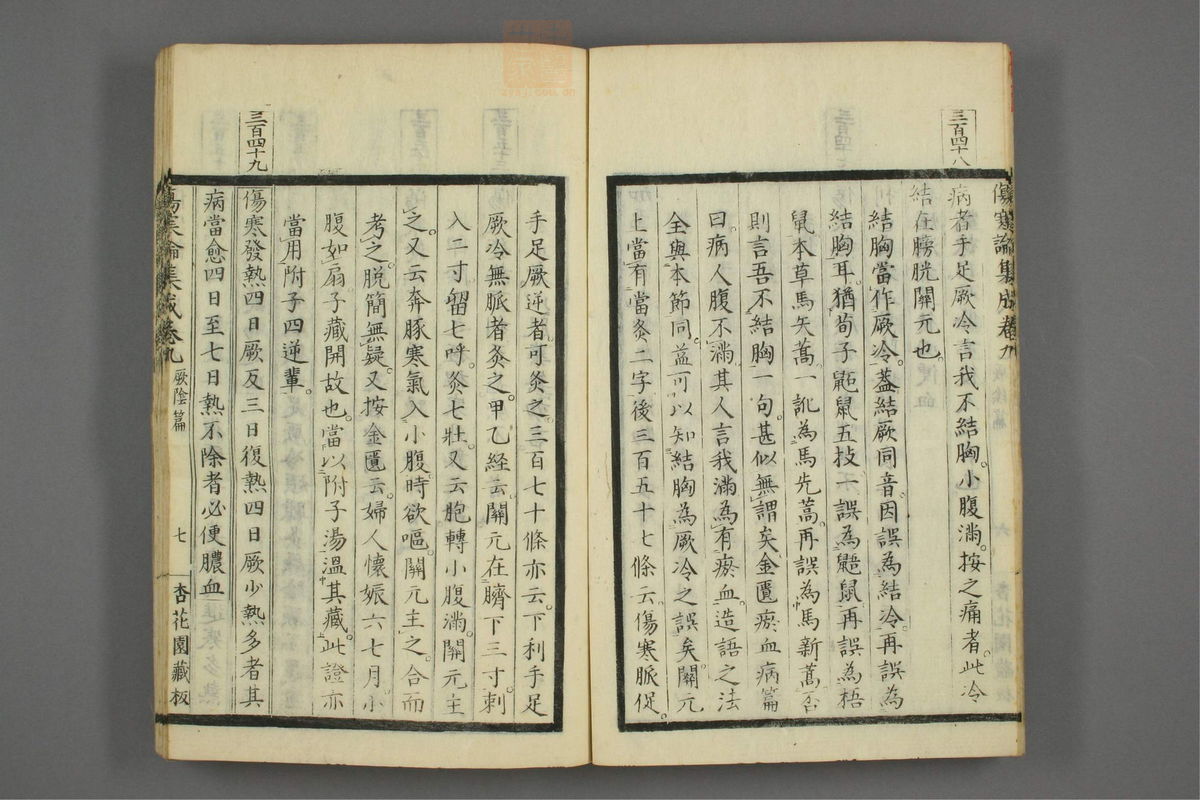 三百四十八
傷寒論集成卷九
病者手足厥冷言我不結胸。小腹滿。按之痛者。此冷
結在膀胱關元也。
結胸當作厥冷。蓋結厥同音。因誤為結冷。再誤為
結胸耳。猶荀子鼫鼠五技一誤為鼯鼠再誤為梧
鼠本草馬矢蒿一訛為馬先蒿。再誤為馬新蒿。否
則言吾不結胸一句。甚似無謂矣金匱瘀血病篇
曰。病人腹不滿。其人言我滿。為有瘀血。造語之法
全與本節同。益可以知結胸為厥冷之誤矣。關元
上當有當灸二字後三百五十七條云。傷寒脈促。
手足厥逆者。可灸之。三百七十條亦云。下利手足
厥冷無脈者灸之。甲乙経云。關元在臍下三寸。刺
入二寸。留七呼。灸七壯。又云胞轉小腹滿。關元主
之。又云奔豚寒氣入小腹時欲嘔。關元主之。合而
考之。脫簡無疑。又按金匱云。婦人懷娠六七月。小
腹如扇。子藏開故也。當以附子湯溫其藏。此證亦
當用附子四逆輩。
三百四十九
傷寒發熱四日厥反三日復熱四日厥少熱多者其
病當愈四日至七日熱不除者必便膿血
傷寒論集成卷九
厥陰篇
七
杏花園藏板